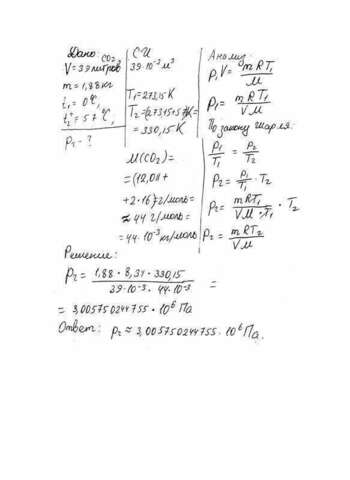 Дано: CO₂
V = 39 литров
m = 1,88 кг
t₁ = 0°C,
t₂ = 57°C,
P₂ - ?
СИ
39·10⁻³ м³
T₁ = 273,15 K
T₂ = (273,15+57)K =
= 330,15 K
M(CO₂) =
= (12,011 +
+ 2·16) г/моль =
≈ 44 г/моль =
= 44·10⁻³ кг/моль
Анализ:
P₁V = mRT₁/M
P₁ = mRT₁/VM
По закону Шарля:
P₁/T₁ = P₂/T₂
P₂ = P₁/T₁ · T₂
P₂ = mRT₁/VM·T₁ · T₂
P₂ = mRT₂/VM
Решение:
P₂ = 1,88 · 8,31 · 330,15 / 39·10⁻³ · 44·10⁻³ =
= 3,005750244755 · 10⁶ Па
Ответ: P₂ ≈ 3,005750244755 · 10⁶ Па.